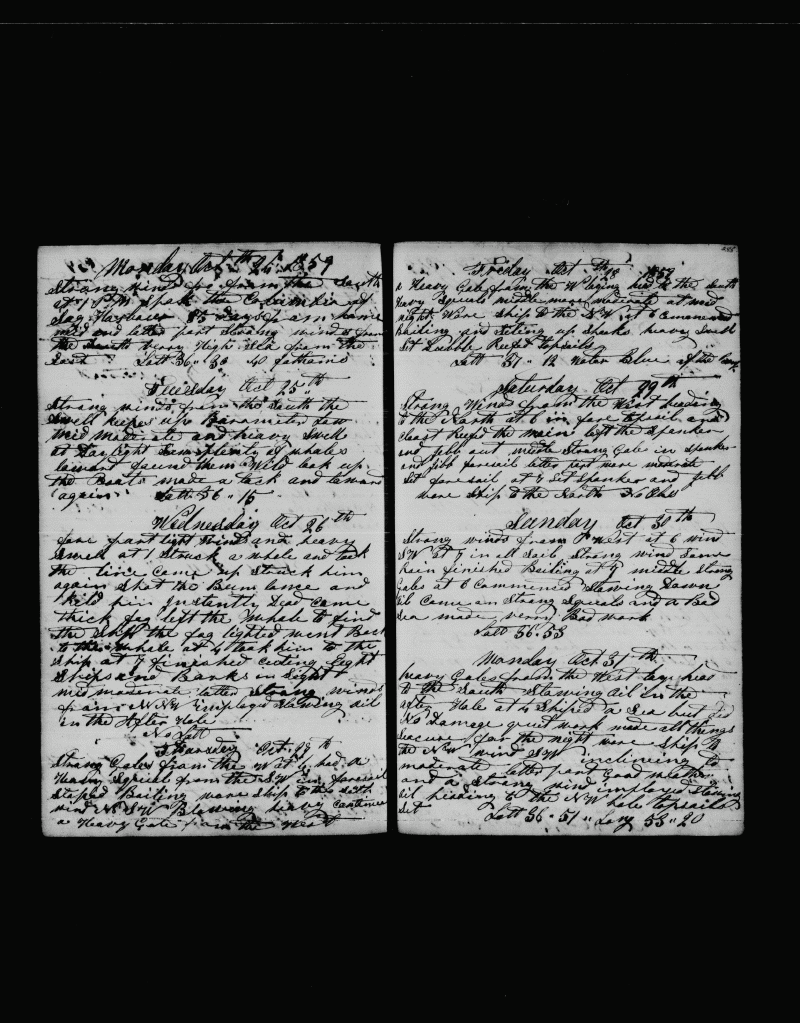 Monday Oct 24th 1859
Strong winds from the South
at P M Spoke the Columbia of
Sag Harbour 85 days from home
mid and latter part Strong winds from
the South very High Sea from the
East Latt 36.. 33 40 fathoms
Tuesday Oct 25th
Strong winds from the South the
Swell keeps up Barometer Low
mid moderate and heavy Swell
at Daylight Saw plenty of whales
loward found them Wild took up
the Boats made a tack and toward
again Latt 36 .. 15
Wednesday Oct 26th
fore part light winds and heavy
Swell at 1 Struck a whale and took
the line Came up Struck him
again Shot the Bum lance and
kild him Instently Dead Came
thick fog left the Whale to find
the Ship the fog lighted went Back
to the whale at 4 took him to the
Ship at 7 finished Cuting Eight
Ships and Barks in Sight
mid moderate latter Strong winds
from N N W Employed Stowing oil
in the After Hole
No Latt
Thursday Oct 27th
Strong Gales from the West had a
Heavy Squall from the S W in foresail
Stopped Boiling wore Ship to the
wind Blowing heavy Continues
a Heavy Gale from the West
255
Friday Oct 28th 1859
a Heavy Gale from the W laying hed to the South
Heavy Squals middle more moderate at mid
night Wore Ship to the N W at 6 Commenced
Boiling and Seting up Spoke heavy Swell
Set Double Reeft Topsails
Latt 37 .. 12 Water Blue of the
Saturday Oct 29th
Strong Winds from the West heeding
to the North at 6 in fore Sail and
Close Reeft the main left the Spanker
and Jibb out middle Strong Gale in Spanker
and Jibb foresail latter part more moderate
Set foresail at 7 Set Spanker and Jibb
wore Ship to the North No Obs
Sunday Oct 30th
Strong winds from West at 6 wind
S W at 7 in all Sail Strong wind Some
Rain finished Boiling at 9 middle Strong
Gale at 6 Commenced Stowing Down
oil Came on Strong Squals and a Bad
Sea made very Bad work
Latt 36.53
Monday Oct 31th
heavy Gales from the West lay hed
to the South Stowing oil in the
After Hole at 4 Shiped a Sea but did
No Damage quit work made all things
Secure for the night wore Ship to
the N W wind S W inclineing to
moderate latter part Good weather
and a Strong wind imployed Stowing
oil heading to the N W hole topsails
Set Latt 36 " 51 " Long 53 " 20